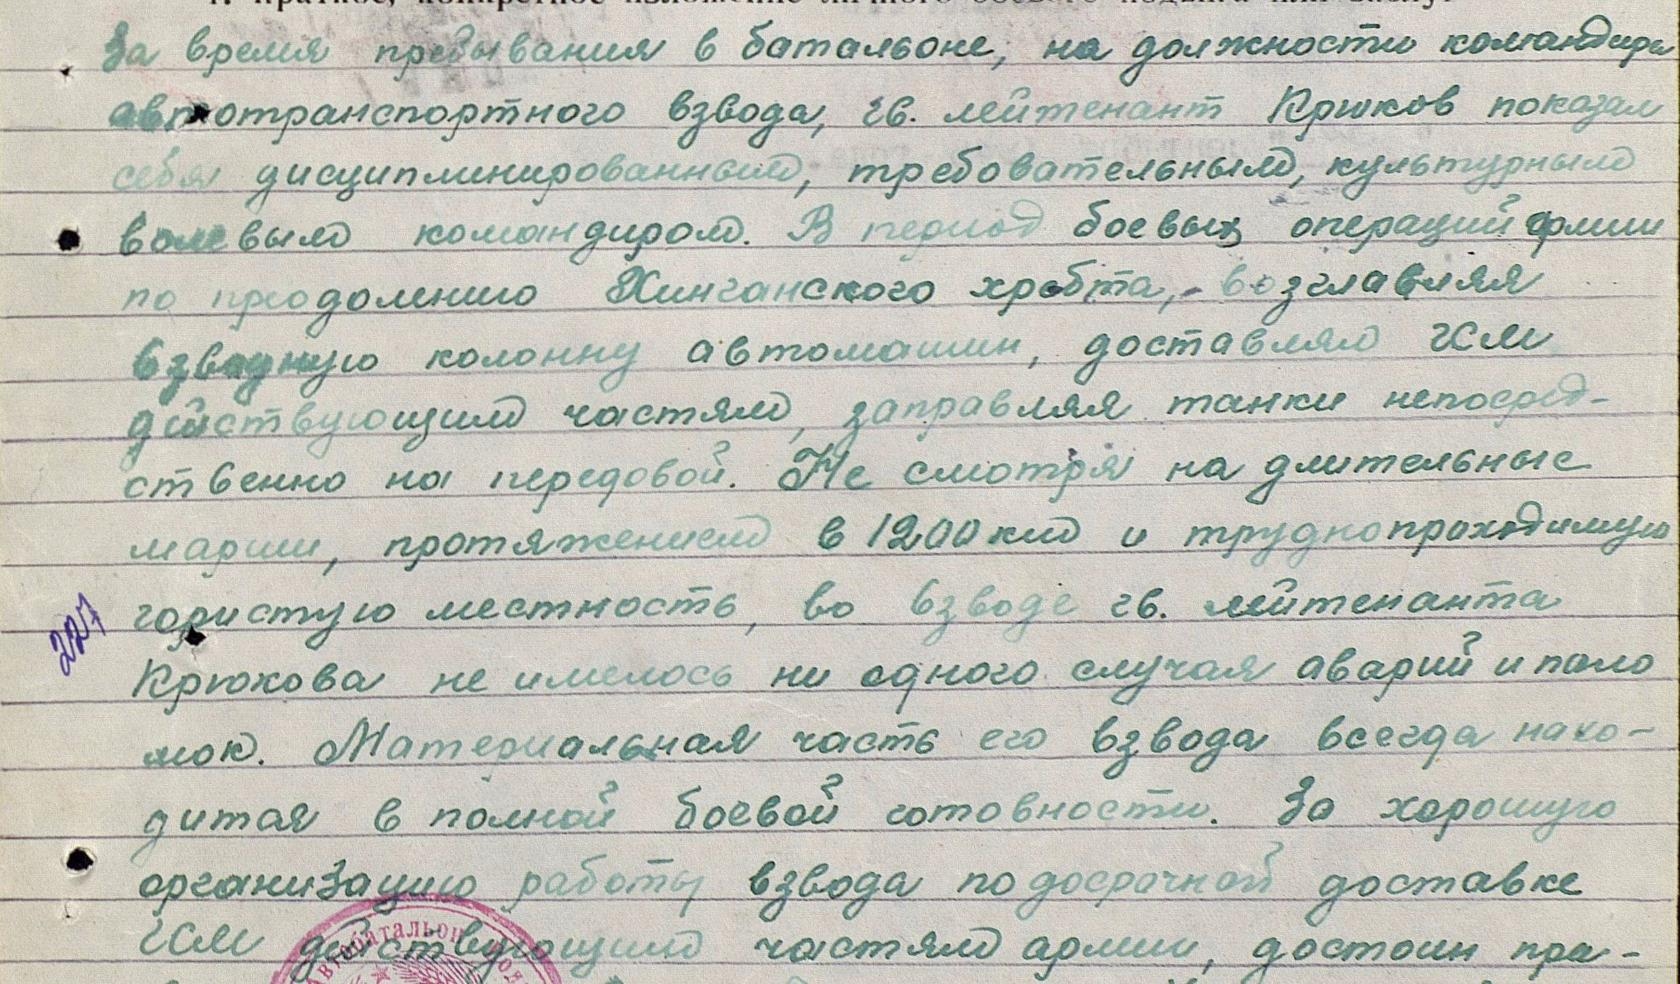 1. Краткое, конкретное изложение личного боевого подвига или заслуг
За время пребывания в батальоне, на должности командира
автотранспортного взвода, гв. лейтенант Крюков показал
себя дисциплинированным, требовательным, культурным
волевым командиром. В период боевых операций армии
по преодолению Хинганского хребта, возглавляя
взводную колонну автомашин, доставлял ГСМ
действующим частям, заправляя танки непосред-
ственно на передовой. Не смотря на длительные
марши, протяжением в 1200 км и труднопроходимую
гористую местность, во взводе гв. лейтенанта
227
Крюкова не имелось ни одного случая аварий и поло
мок. Материальная часть его взвода всегда нахо-
дитая в полной боевой готовности. За хорошую
организацию работы взвода по досрочной доставке
ГСМ действующим частям армии, достоин пра-
Автобатальон